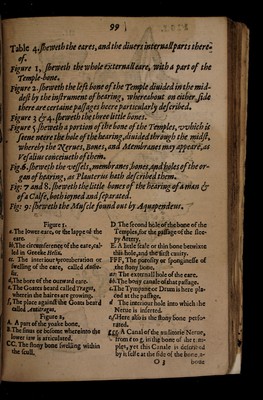 99
Table 4. sheweth the eares, and the divers internall parts there-
of.
Figure 1, sheweth the whole externall eare, with a part of the
Temple-bone.
Figure 2. sheweth the left bone of the Temple divided in the mid-
dest by the instrument of hearing, whereabout on either side
there are certaine passages heere particularly described.
Figure 3 & 4. sheweth the three little bones.
Figure 5 sheweth a portion of the bone of the Temples, which is
seene neere the hole of the hearing, divided through the midst,
whereby the Nerves, Bones, and Membranes may appeare, as
Vesalius conceiveth of them.
Fig. 6. sheweth the vessels, membranes, bones, and holes of the or-
gan of hearing, as Platerius hath described them.
Fig: 7 and 8. sheweth the little bones of the hearing of a man &
of a Calfe, both ioyned and separated.
Fig: 9: sheweth the Muscle found out by Aquapendens.
Figure 1.
a. The lower eare, or the lappe of the
eare.
bb. The circumference of the eare, cal-
led in Greeke Helix.
cc. The interiour protuberation or
swelling of the eare, called Anthe-
lix.
d. The bore of the outward eare.
e. The Goates beard called Tragus,
wherein the haires are growing.
f. The place against the Goats beard
called Antitragus.
Figure 2,
A. A part of the yoake bone.
B. The sinus or bosome whereinto the
lower iaw is articulated.
CC. The stony bone swelling within
the scull.
D The second hole of the bone of the
Temples, for the passage of the slee-
py Artery.
E. A little scale or thin bone betwixt
this hole, and the first cavity.
FFF, The porosity or spongines of
the stony bone.
aa The externall hole of the eare.
bb. The bony canale of that passage.
c. The Tympane or Drum is here pla-
ced at the passage.
d The interiour hole into which the
Nerve is inserted.
Here also is the stony bone perfo-
rated.
A Canal of the auditorie Nerve,
from e to g. in the bone of the tem-
ples, yet this Canale is
by it selfe at the side of the bone
O 3
bone